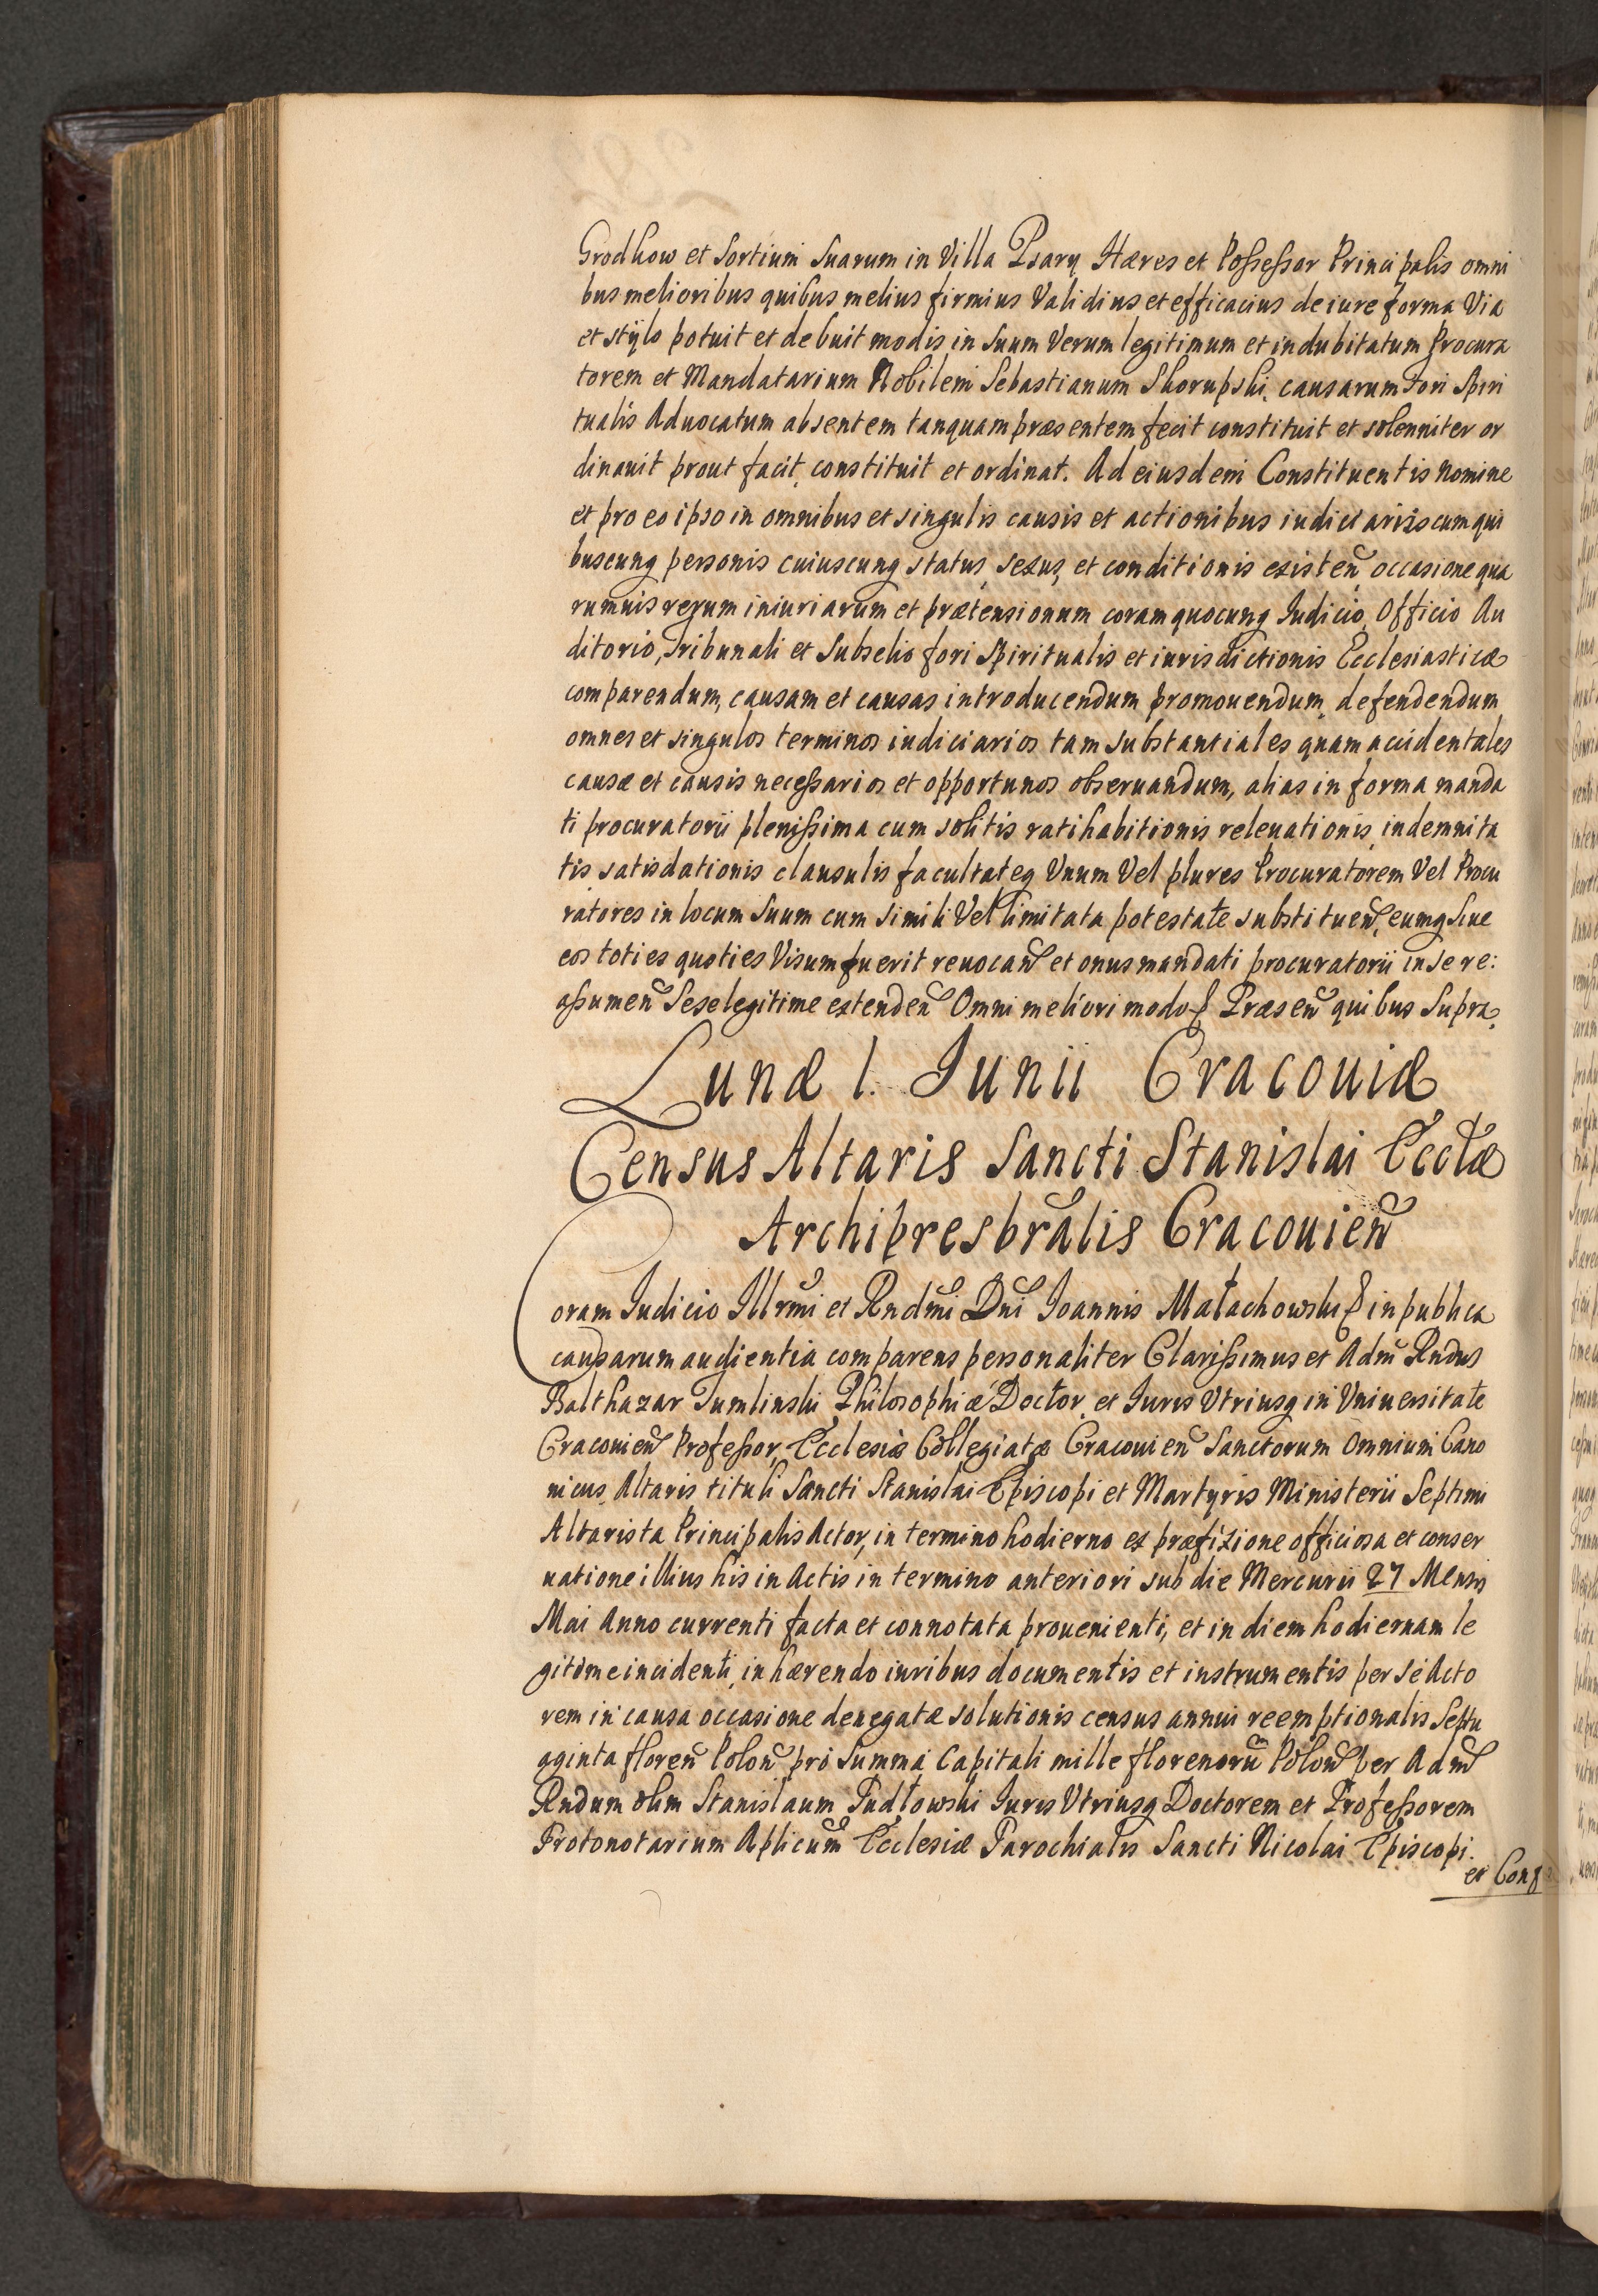 Grodkow et Sortium Suarum in Villa Psary Hæres et Possessor Principalis omni
bus melioribus quibus melius firmius Validius et efficacius de iure forma Via
et stÿlo potuit et debuit modis in Suum Verum legitimum et indubitatum Procura
torem et Mandatarium Nobilem Sebastianum Skorupski, causarum Fori Spiri
tualis Aduocatum absentem tanquam præsentem fecit constituit et solenniter or
dinauit prout facit, constituit et ordinat. Ad eiusdem Constituentis nomine
et pro eo ipso in omnibus et singulis causis et actionibus iudiciariis cum qui
buscunq personis cuiuscunq status, sexus, et conditionis existen̄ occasione qua
rumuis rerum iniuriarum et prætensionum coram quocunq Iudicio, Officio Au
ditorio, Tribunali et Subselio fori Spiritualis et iurisdictionis Ecclesiasticæ
comparendum, causam et causas introducendum promouendum, defendendum
omnes et singulos terminos iudiciarios tam substantiales quam accidentales
causæ et causis necessarios et opportunos obseruandum, alias in forma manda
ti procuratorii plenissima cum solitis ratihabitionis releuationis, indemnita
tis satisdationis clausulis facultateq Vnum Vel plures Procuratorem Vel Procu
ratores in locum Suum cum simili Vel limitata potestate substituen̄, eumq Siue
eos toties quoties Visum fuerit reuocan̄ et onus mandati procuratorii in se re:
assumen̄ Sese legitime extenden̄ Omni meliori modo Præsen̄ quibus Supra.
Lunæ 1. Junii Cracouiæ
Census Altaris Sancti Stanislai Ecclæ
Archipresbrālis Cracouien̄
Coram Iudicio Illrm̄i et Rndm̄i Dn̄i Ioannis Małachowski in publica
causarum audientia comparens personaliter Clarissimus et Adm̄ Rndus
Balthazar Tumlinski Philosophiæ Doctor et Iuris Vtriusq in Vniuersitate
Cracouien̄ Professor, Ecclesiæ Collegiatæ Cracouien̄ Sanctorum Omnium Cano
nicus, Altaris tituli Sancti Stanislai Episcopi et Martyris Ministerii Septimi
Altarista Principalis Actor, in termino hodierno ex præfixione officiosa et conser
uatione illius his in Actis in termino anteriori sub die Mercurii 27 Mensis
Mai Anno currenti facta et connotata prouenienti, et in diem hodiernam le
gitime incidenti, inhærendo iuribus documentis et instrumentis per se Acto
rem in causa occasione denegatæ solutionis census annui reemptionalis Septu
aginta floren̄ Polon̄ pro Summa Capitali mille florenorū Polon̄ per Adm̄
Rndum olim Stanislaum Pudłowski Iuris Vtriusq Doctorem et Professorem
Protonotarium Aplicum̄ Ecclesiæ Parochialis Sancti Nicolai Episcopi
et Conf